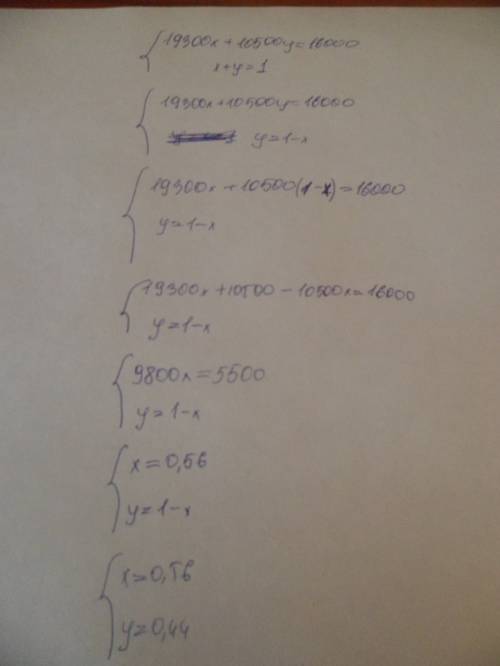 19300x+10500y=16000
x+y=1
19300x+10500y=16000
y=1-x
19300x+10500(1-x)=16000
y=1-x
19300x+10500-10500x=16000
y=1-x
9800x=5500
y=1-x
x=0,56
y=1-x
x=0,56
y=0,44